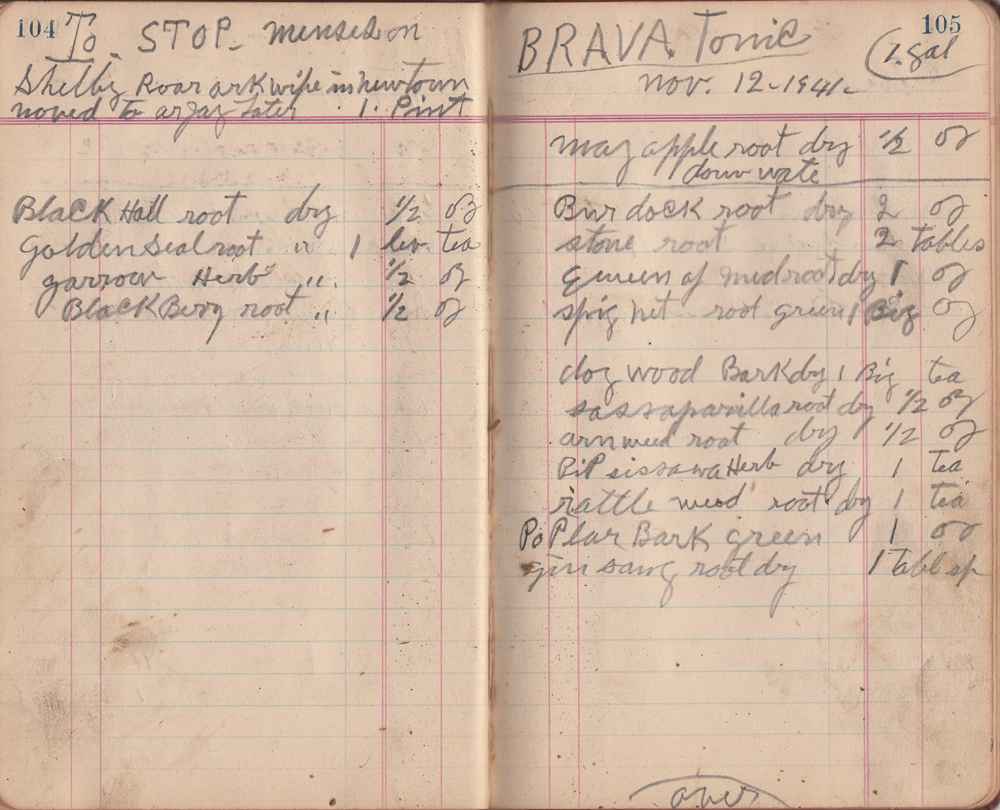 104
To STOP mensedson
Shelby Roarark wife in newtown
moved to arjay Later 1. Pint
Black Hall root dry 1/2 oz
golden Seal root " 1 lev. tea
yarrow Herb " 1/2 oz
Black Bery root " 1/2 oz
105
BRAVA Tonic
1. gal
nov. 12-1941-
may apple root dry 1/2 oz
Bur dock root dry 2 oz
stone root 2 tables
queen of med root dry 1 oz
spig net root green 1 Big oz
dog wood Bark dry 1 Big tea
sassaparilla root dry 1/2 oz
root dry 1/2 oz
PiP sissawa Herb dry 1 tea
rattle weed root dry 1 tea
PoPlar Bark green 1 oz
gin sang root dry 1 tabl sp
over